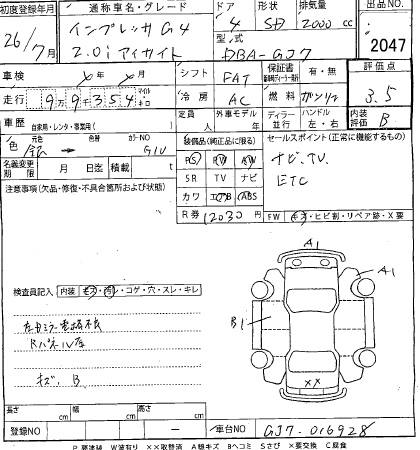 初度登録年月 通称車名・グレード ドア 形状 排気量 出品NO
26年7月 インプレッサG4 4 SD 2000cc
2.0iアイサイト 型式 DBA-GJ7 2047
車検 X年 X月 シフト FAT 保証書 有・無 評価点
走行 9万9千354 マイル キロ 冷房 AC 燃料 ガソリン 3.5
車歴 自家用・レンタ・事業用( ) 定員 人 外車モデル 年 ディーラー 並行 ハンドル 左・右 内装評価 B
色 元色 → カラーNO G1U
装備品(純正品に限る) セールスポイント(正常に機能するもの)
名義変更期限 月 日迄 積載 t
PS PW AW ナビ、TV
SR TV ナビ ETC
注意事項(欠品・修復・不具合箇所および状態)
カワ エアB ABS
R券 12030円 FW キズ・ヒビ割・リペア跡・X要
A1
A1
B1
検査員記入 内装 キズ・汚レ・コゲ・穴・スレ・キレ
キズ、B
XX
長さ cm 幅 cm 高さ cm
登録NO − 車台NO GJ7-016928
P要塗装 W波有り XX取替済 A線キズ Bヘコミ Sさび X要交換 C腐食